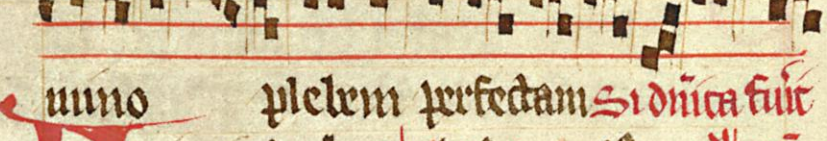 mino plebem perfectam Si dn̄ica fu͛it